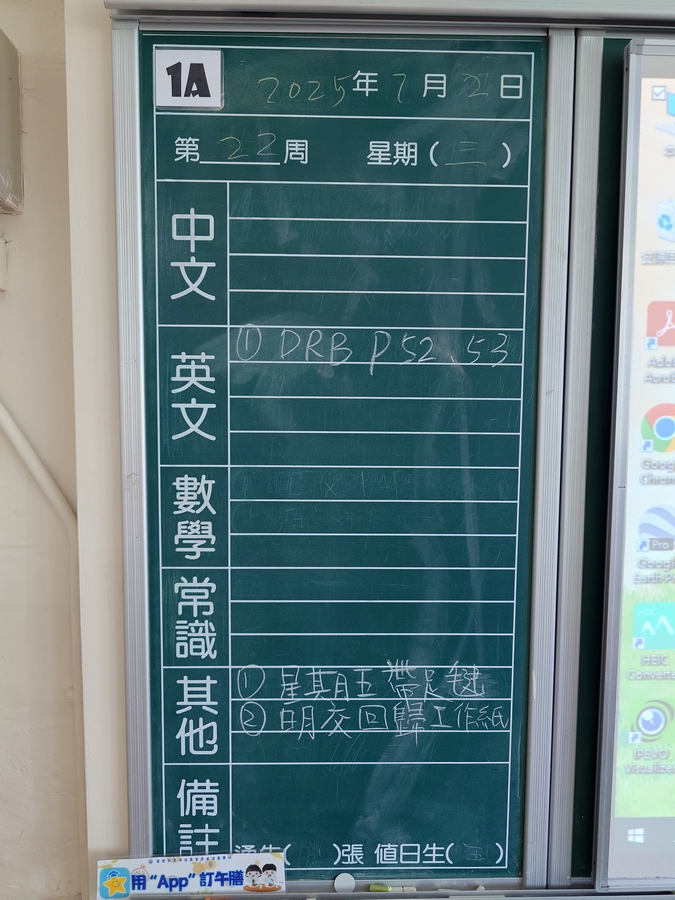 1A
2025年7月2日
第22周 星期(三)
中文
英文
① DRB P52、53
數學
常識
其他
① 星期五帶足毽
② 明交回歸工作紙
備註
通告( )張 值日生( )
用“App”訂午膳
Adob
Acroba
Googl
Chrom
Pro
Googl
Earth P
HEIC
Converte
IPEVO
Visualize